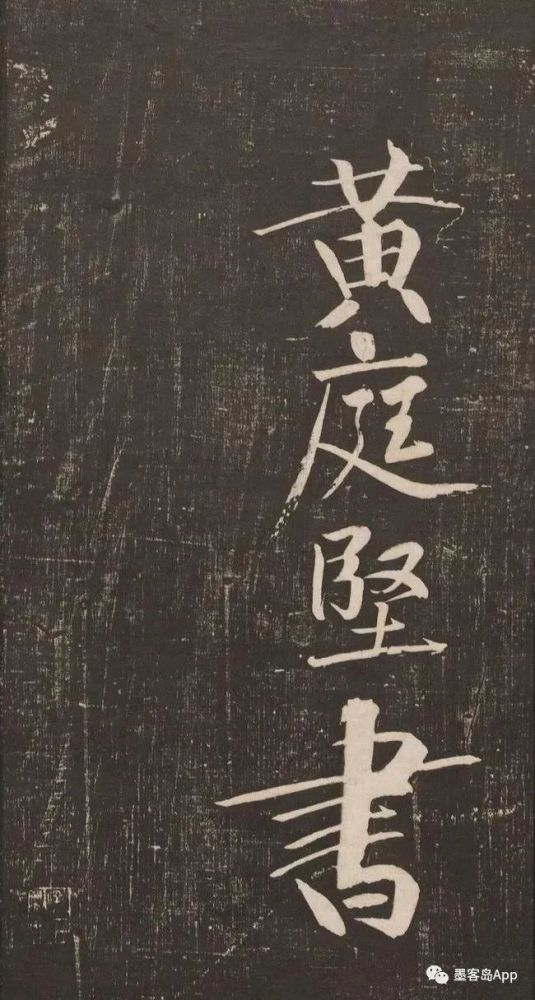 黄庭堅書
墨客岛App